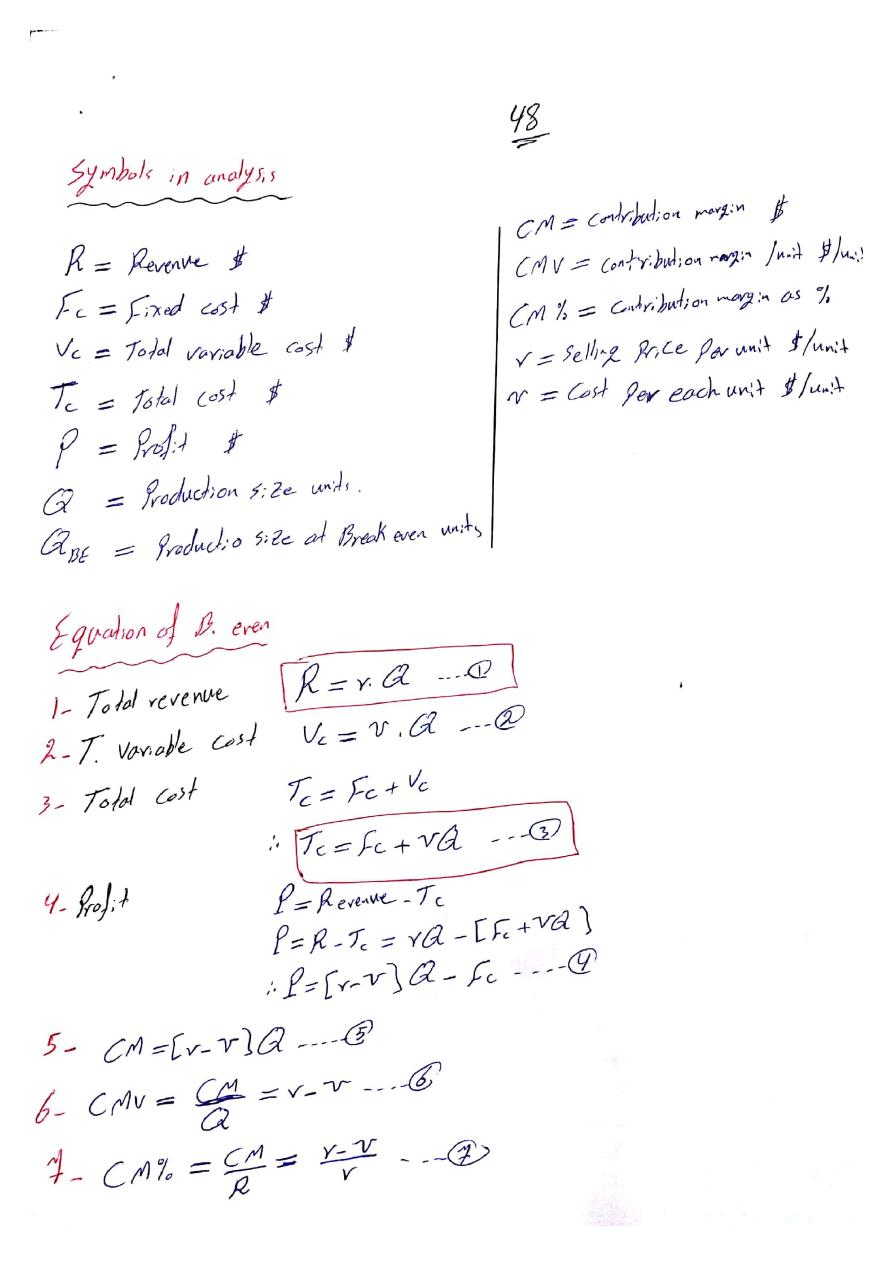 48
Symbols in analysis
R = Revenue $
Fc = Fixed cost $
Vc = Total variable cost $
Tc = Total cost $
P = Profit $
Q = Production size units.
Q_BE = Productio size at Break even units
CM = Contribution margin $
CMV = Contribution margin /unit $/unit
CM% = Contribution margin as %
r = Selling Price Per unit $/unit
v = Cost Per each unit $/unit
Equation of B. even
1- Total revenue R = r.Q ....①
2- T. Variable cost Vc = v.Q ...②
3- Total cost Tc = Fc + Vc
∴ Tc = Fc + vQ ...③
4- Profit P = Revenue - Tc
P = R - Tc = rQ - [Fc + vQ]
∴ P = [r-v] Q - Fc ....④
5- CM = [r-v] Q .....⑤
6- CMV = CM/Q = r-v ....⑥
7- CM% = CM/R = r-v/r ....⑦